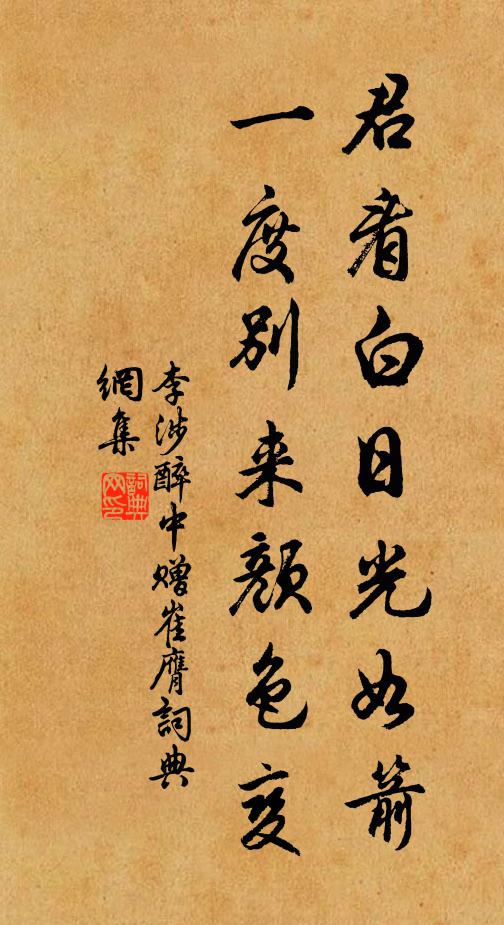 君看白日光如箭
一度别来颜色变
李涉醉中赠崔膺詞典
網集
詞典网印